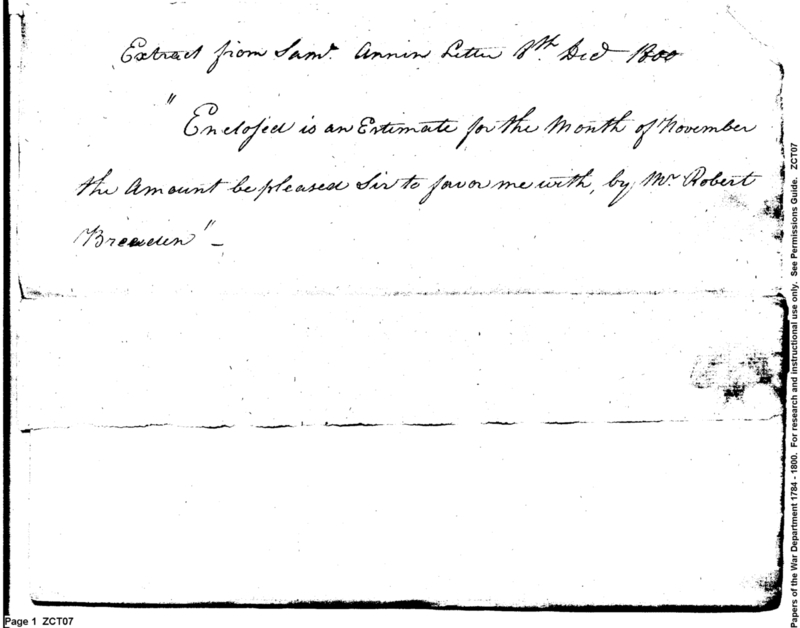 Extract from Saml. Annin Letter 8th. Decd 1800
"Enclosed is an Estimate for the Month of November
the Amount be pleased Sir to favor me with, by Mr. Robert
Breaden" –
Page 1 ZCT07
Papers of the War Department 1784 - 1800. For research and instructional use only. See Permissions Guide. ZCT07